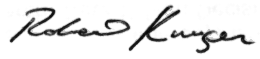 Robert Kruger